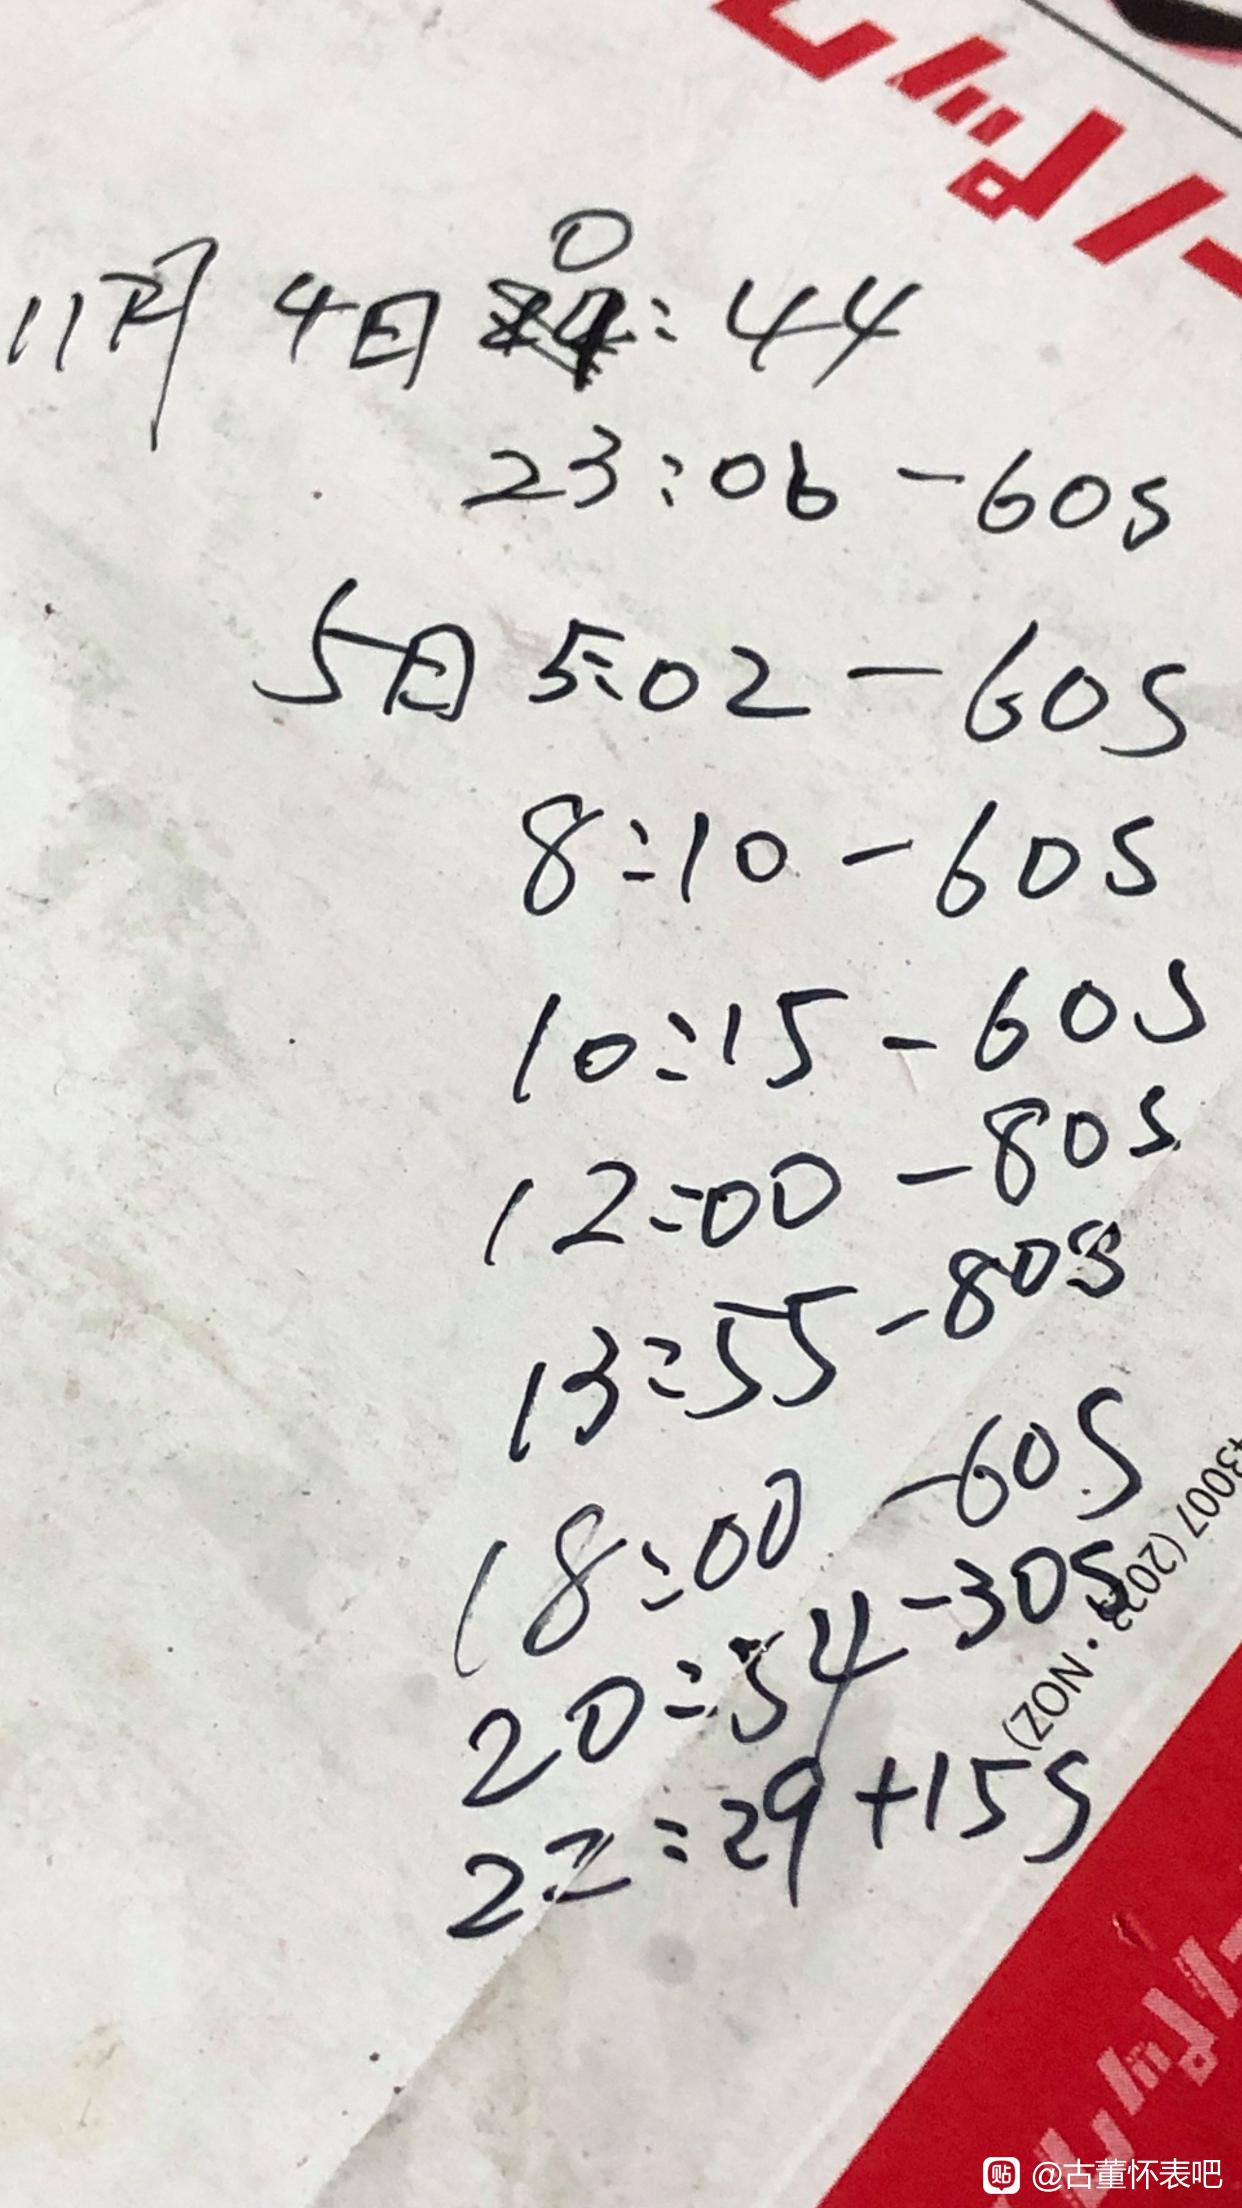 11月4日 0:44
23:06 -60s
5日 5:02 -60s
8:10 -60s
10:15 -60s
12:00 -80s
13:55 -80s
18:00 -60s
20:54 -30s
22:29 +15s
@古董怀表吧